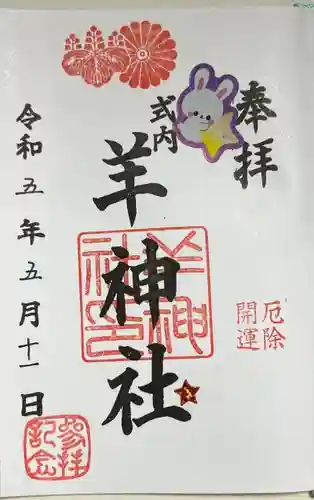 奉拝
式内
羊神社
令和五年五月十一日
厄除
開運
羊神社印
参拝
記念